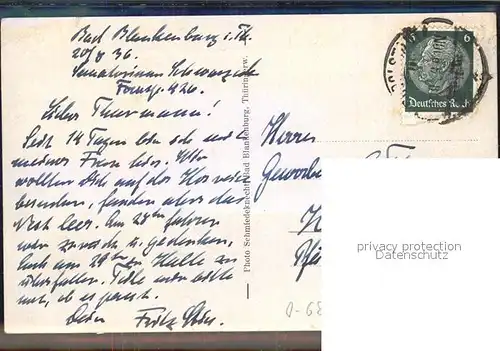 Bad Blankenburg i. Th.
20/8 36.
Sanatorium Schwarzeck
Fernspr. 426.
Lieber Thurmann!
Seit 14 Tagen bin ich und
meiner Frau hier. Wir
wollten Dich auf der Herreise
besuchen, fanden aber das
Nest leer. Am 28ten fahren
wir zurück u. gedenken,
Dich am 29ten in Halle zu
überfallen. Teile mir bitte
mit, ob es passt.
Dein Fritz
Photo Schmiedeknecht, Bad Blankenburg, Thüringerw.
Herrn
6 6
Deutsches Reich
privacy protection
Datenschutz